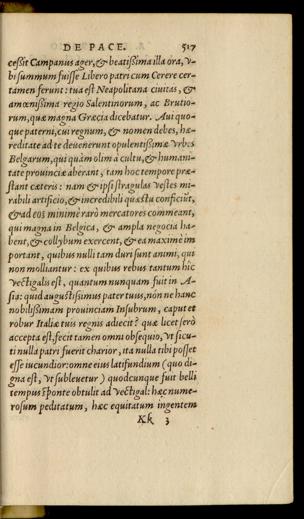 DE PACE. 517
cessit Campanus ager, & beatissima illa ora, v-
bi summum fuisse Libero patri cum Cerere cer-
tamen ferunt: tua est Neapolitana ciuitas, &
amœnissima regio Salentinorum, ac Brutio-
rum, quæ magna Græcia dicebatur. Aui quo-
que paterni, cui regnum, & nomen debes, hæ-
reditate ad te deuenerunt opulentissimæ vrbes
Belgarum, qui quàm olim à cultu, & humani-
tate prouinciæ aberant, tam hoc tempore præ-
stant cæteris: nam & ipsi stragulas vestes mi-
rabili artificio, & incredibili quæstu conficiūt,
& ad eos minimè rarò mercatores commeant,
qui magna in Belgica, & ampla negocia ha-
bent, & collybum exercent, & ea maximè im
portant, quibus nulli tam duri sunt animi, qui
non molliantur: ex quibus rebus tantum hic
vectigalis est, quantum nunquam fuit in A-
sia: quid augustissimus pater tuus, nōn ne hanc
nobilissimam prouinciam Insubrum, caput et
robur Italiæ tuis regnis adiecit? quæ licet serò
accepta est, fecit tamen omni obsequio, vt sicu-
ti nulla patri fuerit charior, ita nulla tibi posset
esse iucundior: omne eius latifundium (quo di-
gna est, vt subleuetur) quodcunque fuit belli
tempus spōnte obtulit ad vectigal: hæc nume-
rosum peditatum, hæc equitatum ingentem
Kk 3